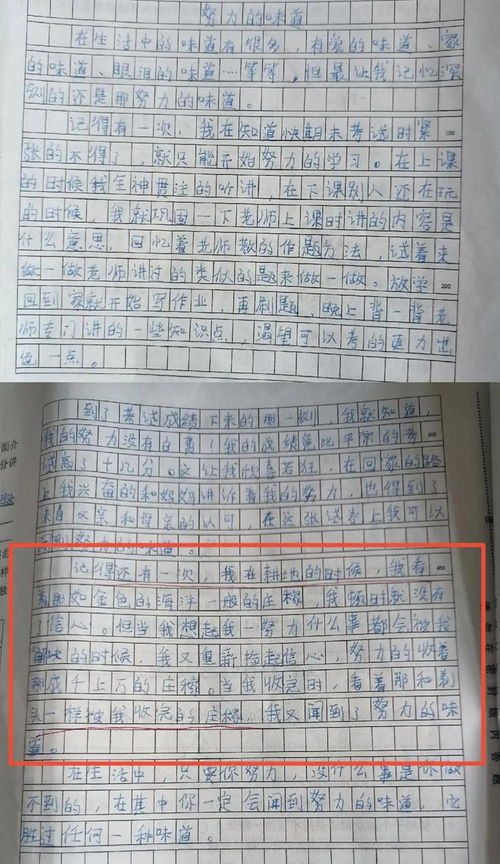 努力的味道
在生活中的味道有很多，有爱的味道、家
的味道、眼泪的味道…等等，但最让我记忆深
刻的还是那努力的味道。
记得有一次，我在知道快期末考试时紧
张的不得了，就只能开始努力的学习。在上课
的时候我全神贯注的听讲，在下课别人还在玩
的时候，我就巩固一下老师上课时讲的内容是
什么意思，回忆着老师教的作题方法，试着来
做一做老师讲过的类似的题来做一做。放学
回到家就开始写作业，再刷题、晚上背一背老
师专门讲的一些知识点，渴望可以考的更力出
色一点。
到了考试成绩下来的那一刻，我就知道，
我的努力没有白费！我的成绩竟比平常的考
试高了十几分。这让我欣喜若狂，在回家的路
上我兴奋的和妈妈讲诉着我的努力，也得到了
来自父亲和母亲的认可，在这张试卷上我可以
努力的味道。
记得还有一次，我在耕地的时候，我看
着那如金色的海洋一般的庄稼，我顿时就没有
了信心。但当我想起我一努力什么事都会被我
解决的时候，我又重新捡起信心，努力的收着
成千上万的庄稼。当我收完时，看着那和剃
头一样被我收完的庄稼，我又闻到了努力的味
道。
在生活中，只要你努力，没什么事是你做
不到的，在其中你一定会闻到努力的味道，它
胜过任何一种味道。
100
200
400
面介
分讲
样
独
内
答
题